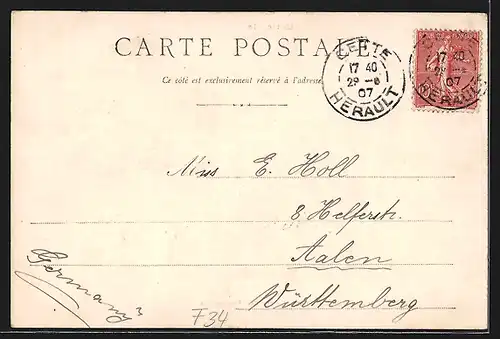 CARTE POSTALE
Ce côté est exclusivement réservé à l'adresse
CETTE
17 40
29 -6
07
HERAULT
17 40
07
HERAULT
Miss E. Holl
8 Helferstr.
Aalen
Württemberg
Germany
F34